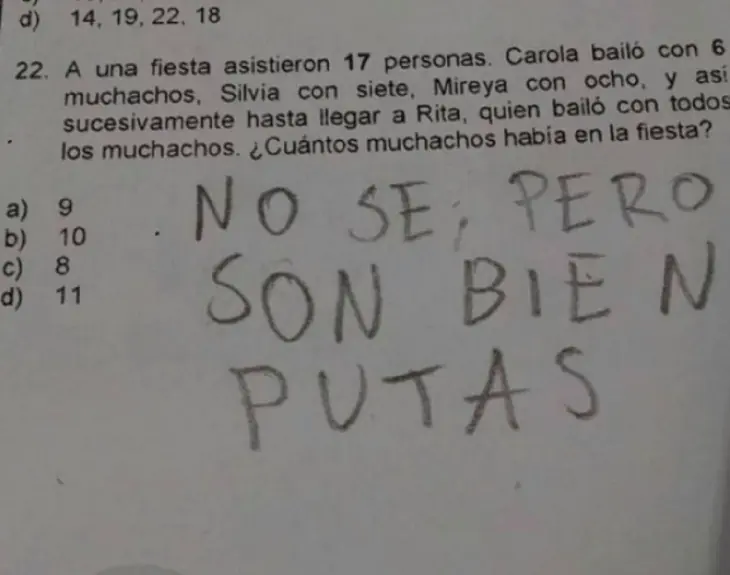 d) 14, 19, 22, 18
22. A una fiesta asistieron 17 personas. Carola bailó con 6
muchachos, Silvia con siete, Mireya con ocho, y así
sucesivamente hasta llegar a Rita, quien bailó con todos
los muchachos. ¿Cuántos muchachos había en la fiesta?
a) 9
b) 10
c) 8
d) 11
NO SE, PERO
SON BIEN
PUTAS